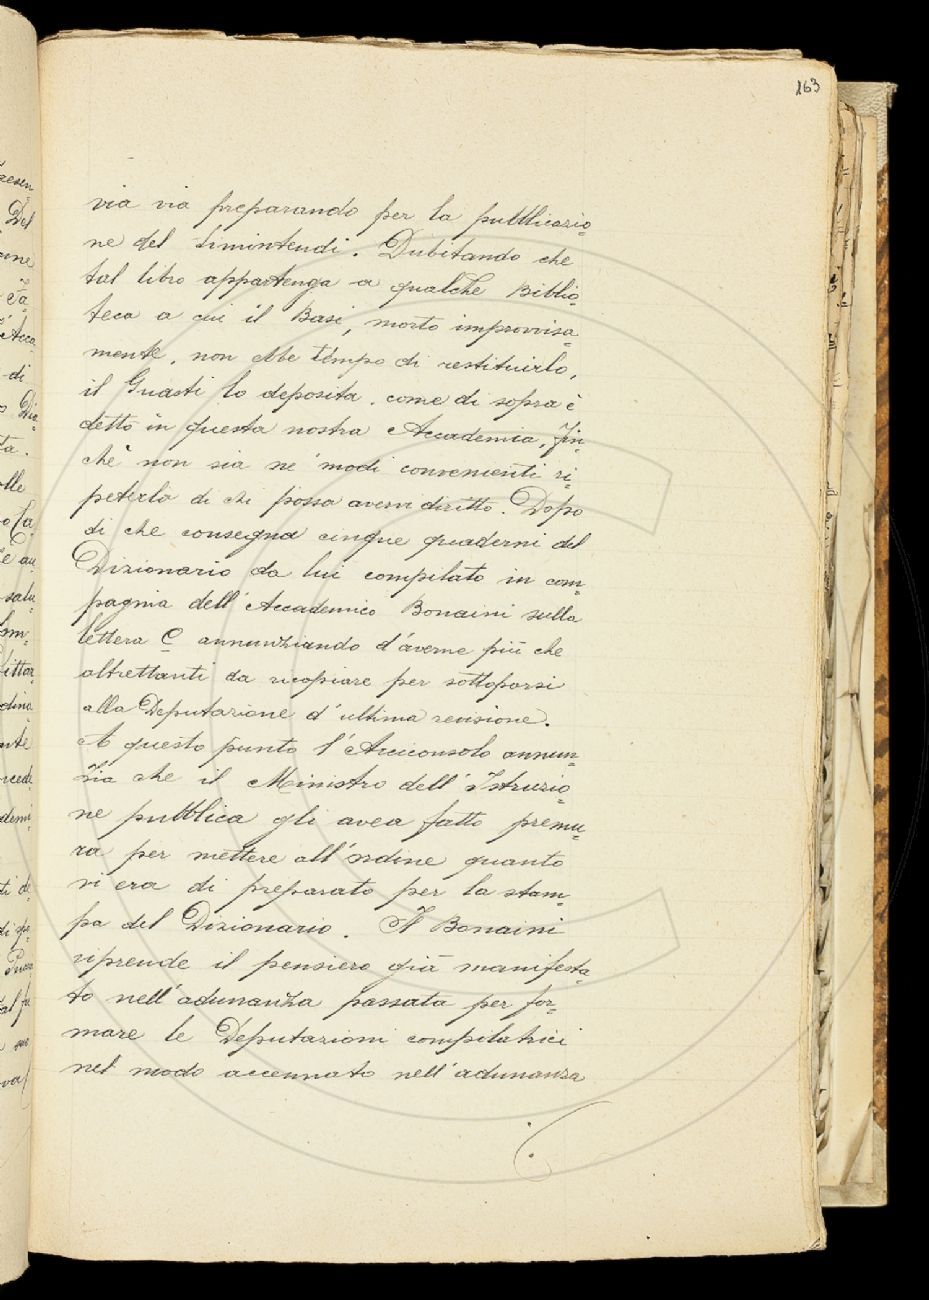 163
via via preparando per la pubblicazio=
ne del Simintendi. Dubitando che
tal libro appartenga a qualche Biblio=
teca a cui il Basi, morto improvvisa
mente, non ebbe tempo di restituirlo,
il Guasti lo deposita, come di sopra è
detto in questa nostra Accademia, fin=
chè non sia ne' modi convenienti ri=
peterlo di chi possa averne diritto. Dopo
di che consegna cinque quaderni del
Dizionario da lui compilato in com=
pagnia dell'Accademico Bonaini sulla
lettera C annunziando d'averne più che
altrettanti da ricopiare per sottoporsi
alla Deputazione d'ultima revisione.
A questo punto l'Arciconsolo annun=
zia che il Ministro dell'Istruzio=
ne pubblica gli avea fatto premu=
ra per mettere all'ordine quanto
vi era di preparato per la stam=
pa del Dizionario. Il Bonaini
riprende il pensiero già manifesta=
to nell'adunanza passata per for=
mare le Deputazioni compilatrici
nel modo accennato nell'adunanza